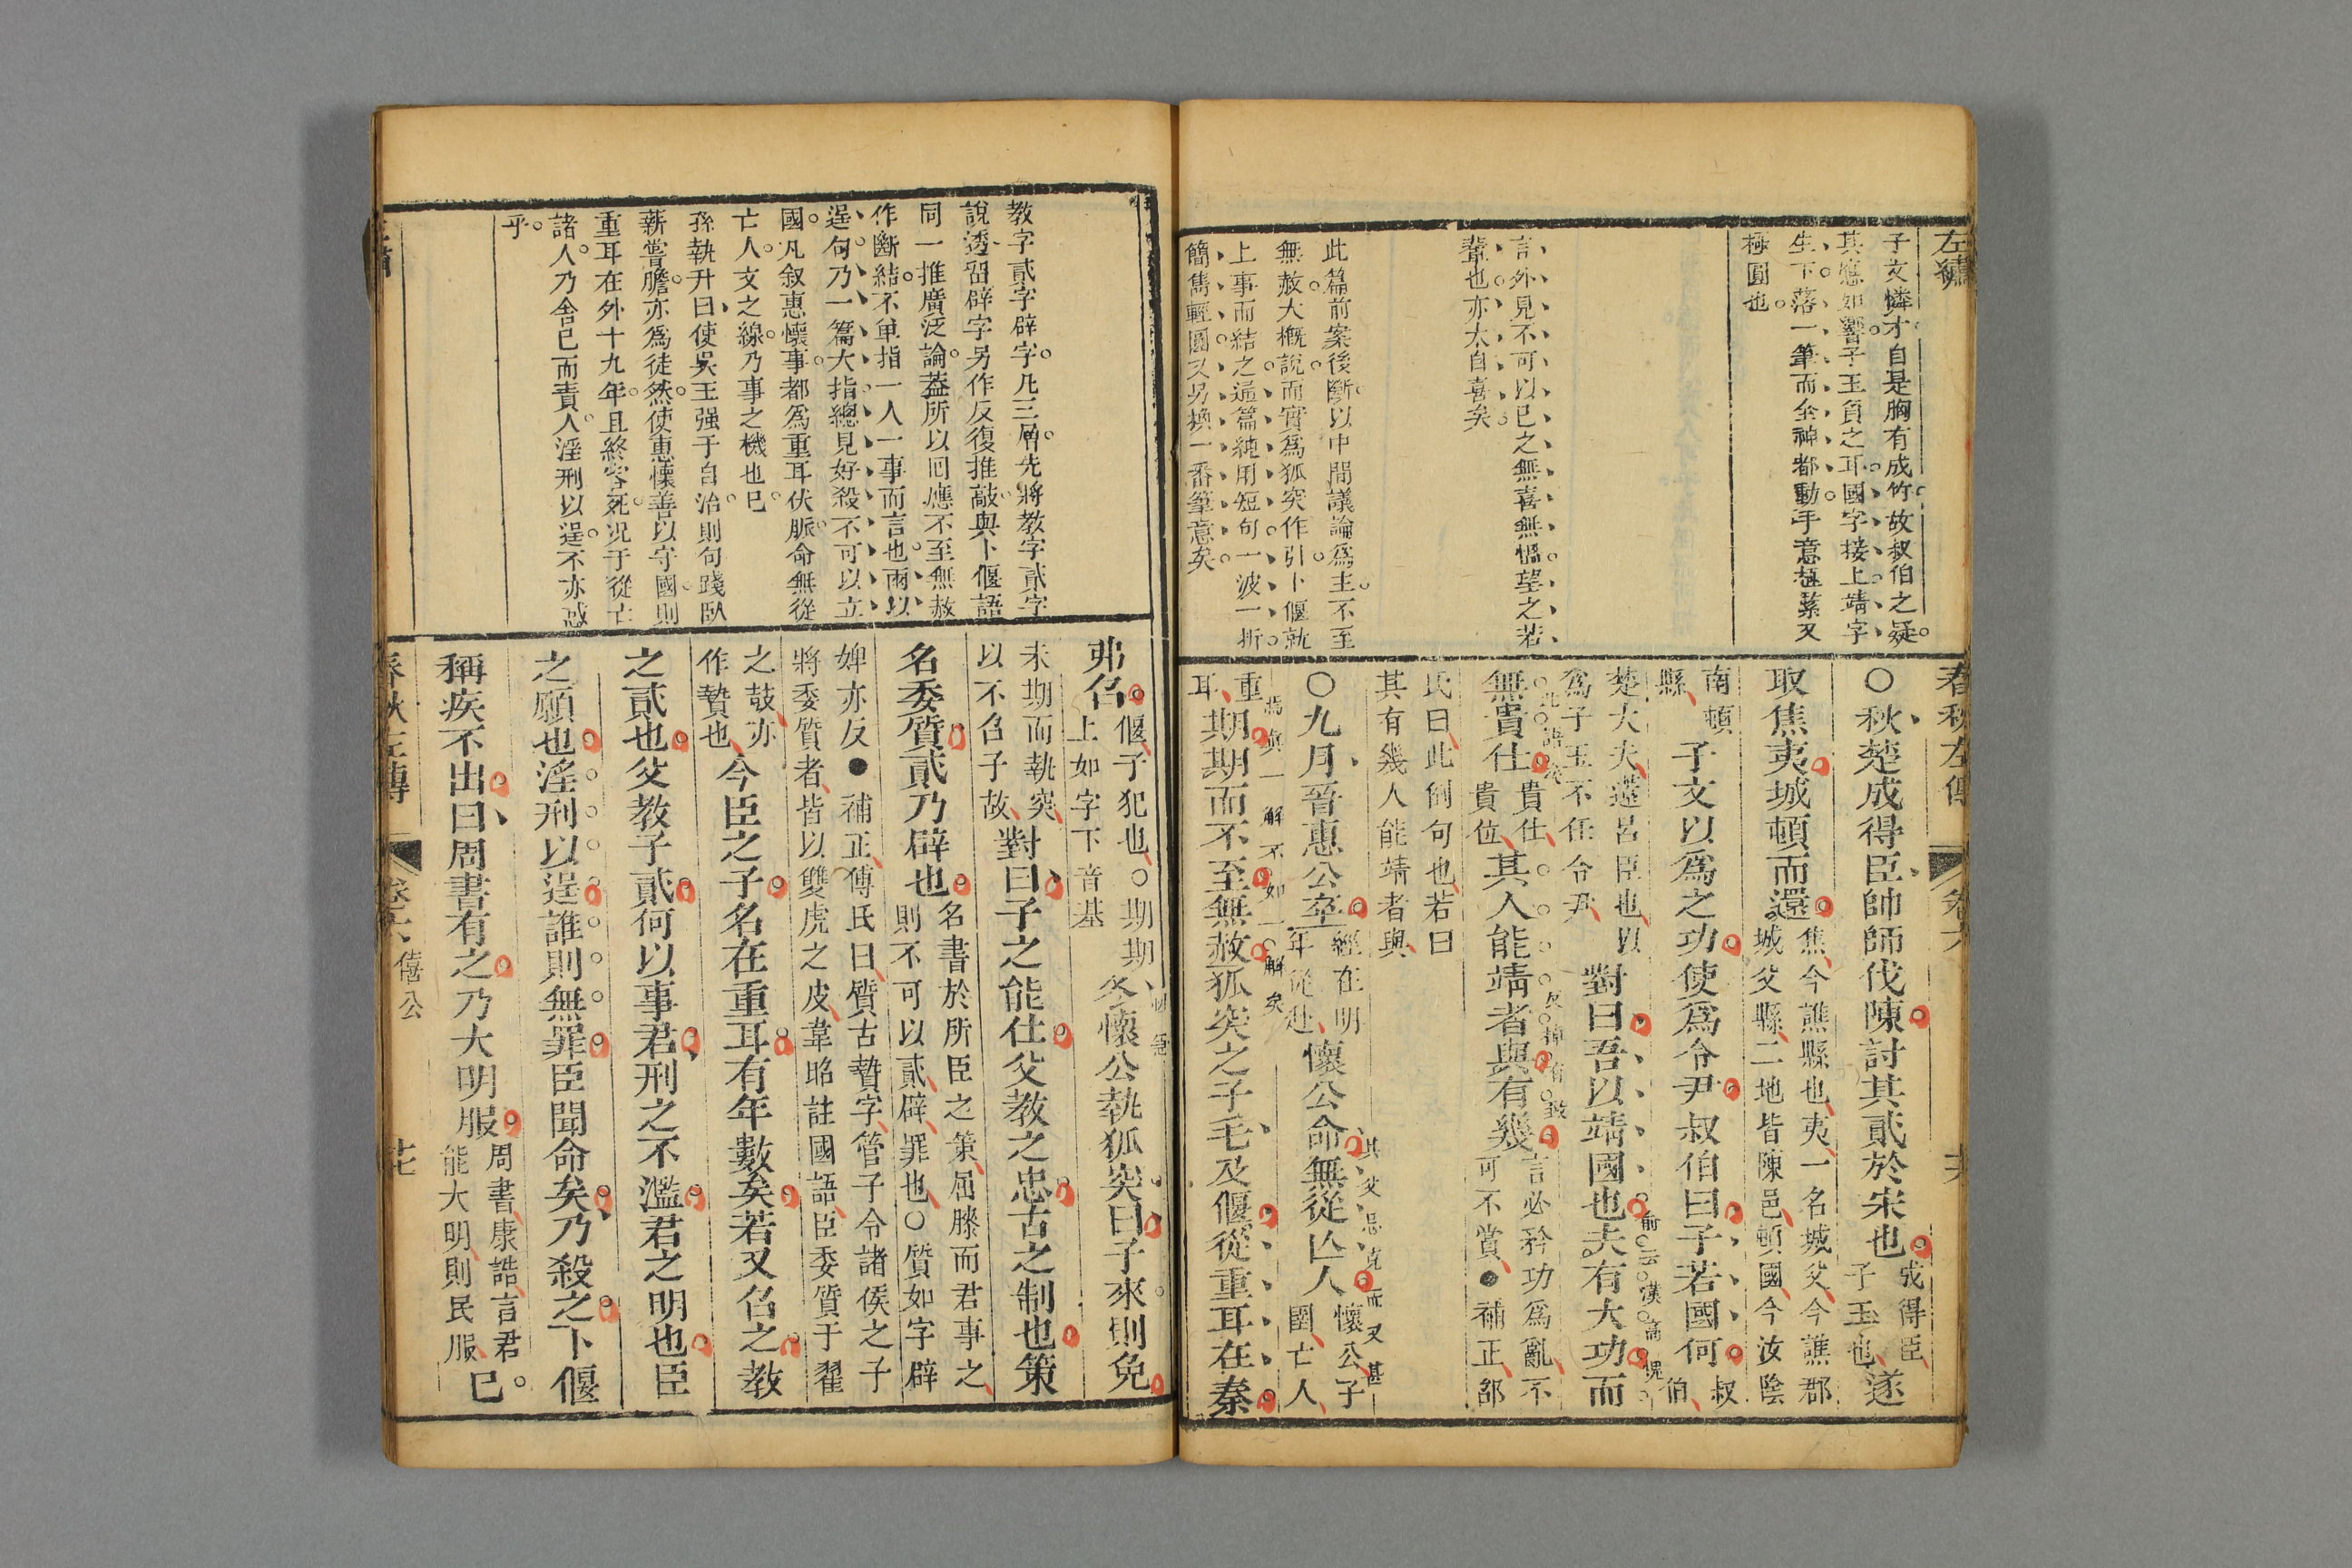 左繡
子文憐才自是胸有成竹故叔伯之疑
其應如響子玉負之耳國字接上靖字
生下落一筆而全神都動手意極紫又
極圓也
言外見不可以已之無喜無慍望之若
輩也亦太自喜矣
此篇前案後斷以中間議論爲主不至
無赦大概說而實爲狐突作引卜偃就
上事而結之通篇純用短句一波一折
簡雋輕圓又另換一番筆意矣
春秋左傳 卷六
○秋楚成得臣帥師伐陳討其貳於宋也成得臣子玉也遂
取焦夷城頓而還焦今譙縣也夷一名城父今譙郡城父縣二地皆陳邑頓國今汝陰
南頓縣子文以爲之功使爲令尹叔伯曰子若國何叔伯
楚大夫薳呂臣也以爲子玉不任令尹對曰吾以靖國也夫有大功而
無貴仕貴仕貴位其人能靖者與有幾言必矜功爲亂不可不賞●補正邵
氏曰此倒句也若曰其有幾人能靖者與
○九月晉惠公卒經在明年從赴懷公命無從亡人懷公子圉亡人
重耳期期而不至無赦狐突之子毛及偃從重耳在秦
教字貳字辟字凡三層先將教字貳字
說透留辟字另作反復推敲與卜偃語
同一推廣泛論蓋所以回應不至無赦
作斷結不單指一人一事而言也兩以
逞句乃一篇大指總見好殺不可以立
國凡叙惠懷事都爲重耳伏脈命無從
亡人文之線乃事之機也已
孫執升曰使吳王强于自治則句踐臥
薪嘗膽亦爲徒然使惠懷善以守國則
重耳在外十九年且終客死况于從亡
諸人乃舍已而責人淫刑以逞不亦惑
乎
弗召偃子犯也○期期上如字下音基冬懷公執狐突曰子來則免
未期而執突以不召子故對曰子之能仕父教之忠古之制也策
名委質貳乃辟也名書於所臣之策屈膝而君事之則不可以貳辟罪也○質如字辟
婢亦反●補正傅氏曰質古贄字管子令諸侯之子將委質者皆以雙虎之皮韋昭註國語臣委質于翟
之鼓亦作贄也今臣之子名在重耳有年數矣若又召之教
之貳也父教子貳何以事君刑之不濫君之明也臣
之願也淫刑以逞誰則無罪臣聞命矣乃殺之卜偃
稱疾不出曰周書有之乃大明服周書康誥言君能大明則民服已
春秋左傳 卷六 僖公